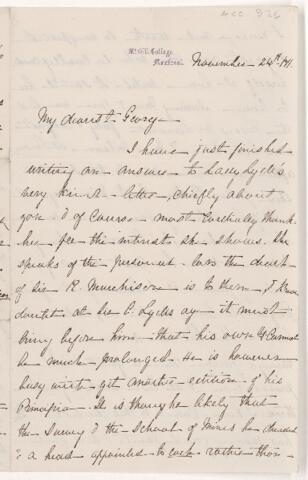 ACC 826
McGill College,
Montreal.
November 24th 1871
My dearest George
I have just finished
writing an answer to Lady Lyell's
very kind letter, chiefly about
you & of course most cordially thank
her for the interest she shows. She
speaks of the personal loss the death
of Sir R. Murchison is to them, &
doubt at Sir C. Lyell's age it must
bring before him that his own cannot
be much prolonged. He is however
busy with yet another edition of his
Principia. It is thought likely that
the Survey & the School of Mines
a head appointed to each rather than